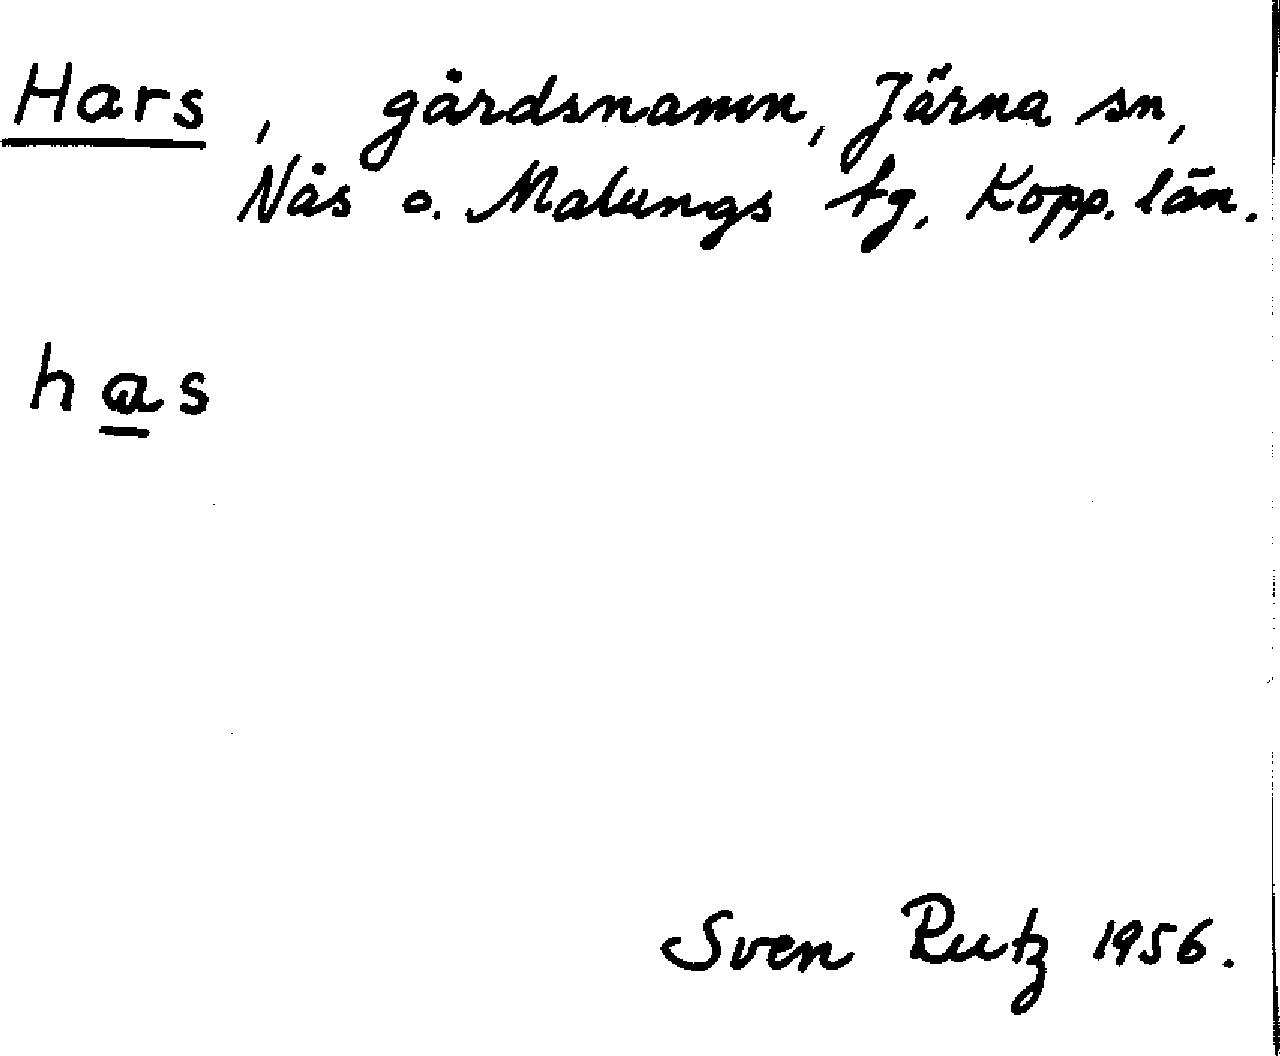 Hars, gårdsnamn, Järna sn,
Nås o. Malungs tg. Kopp. län.
has
Sven Rutz 1956.